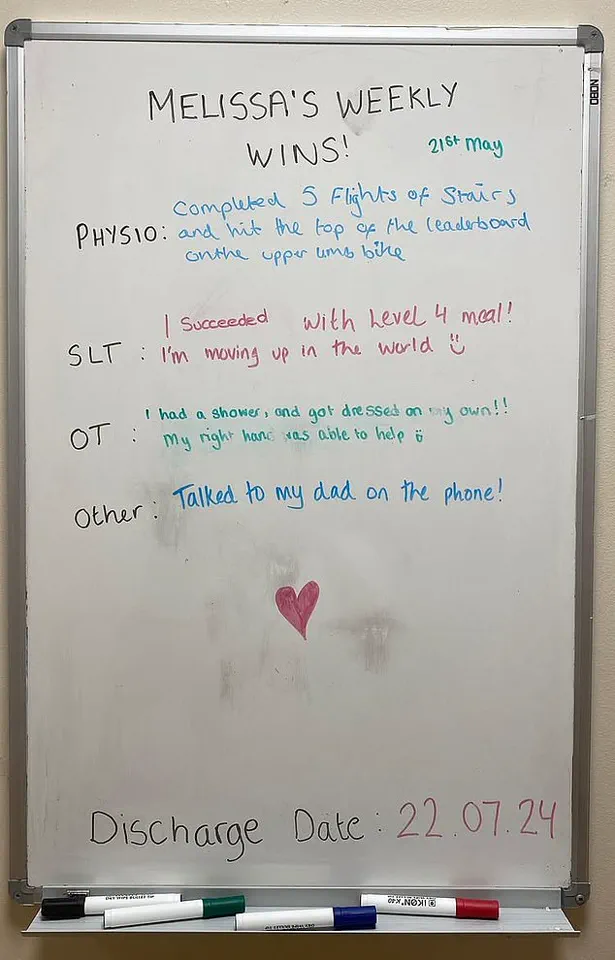 MELISSA'S WEEKLY
WINS!
21st May
PHYSIO: Completed 5 Flights of Stairs
and hit the top of the leaderboard
on the upper limb bike
SLT : I Succeeded with Level 4 meal!
I'm moving up in the world
OT : I had a shower, and got dressed on my own!!
My right hand was able to help
Other: Talked to my dad on the phone!
Discharge Date: 22.07.24
NOBO
IKON K40